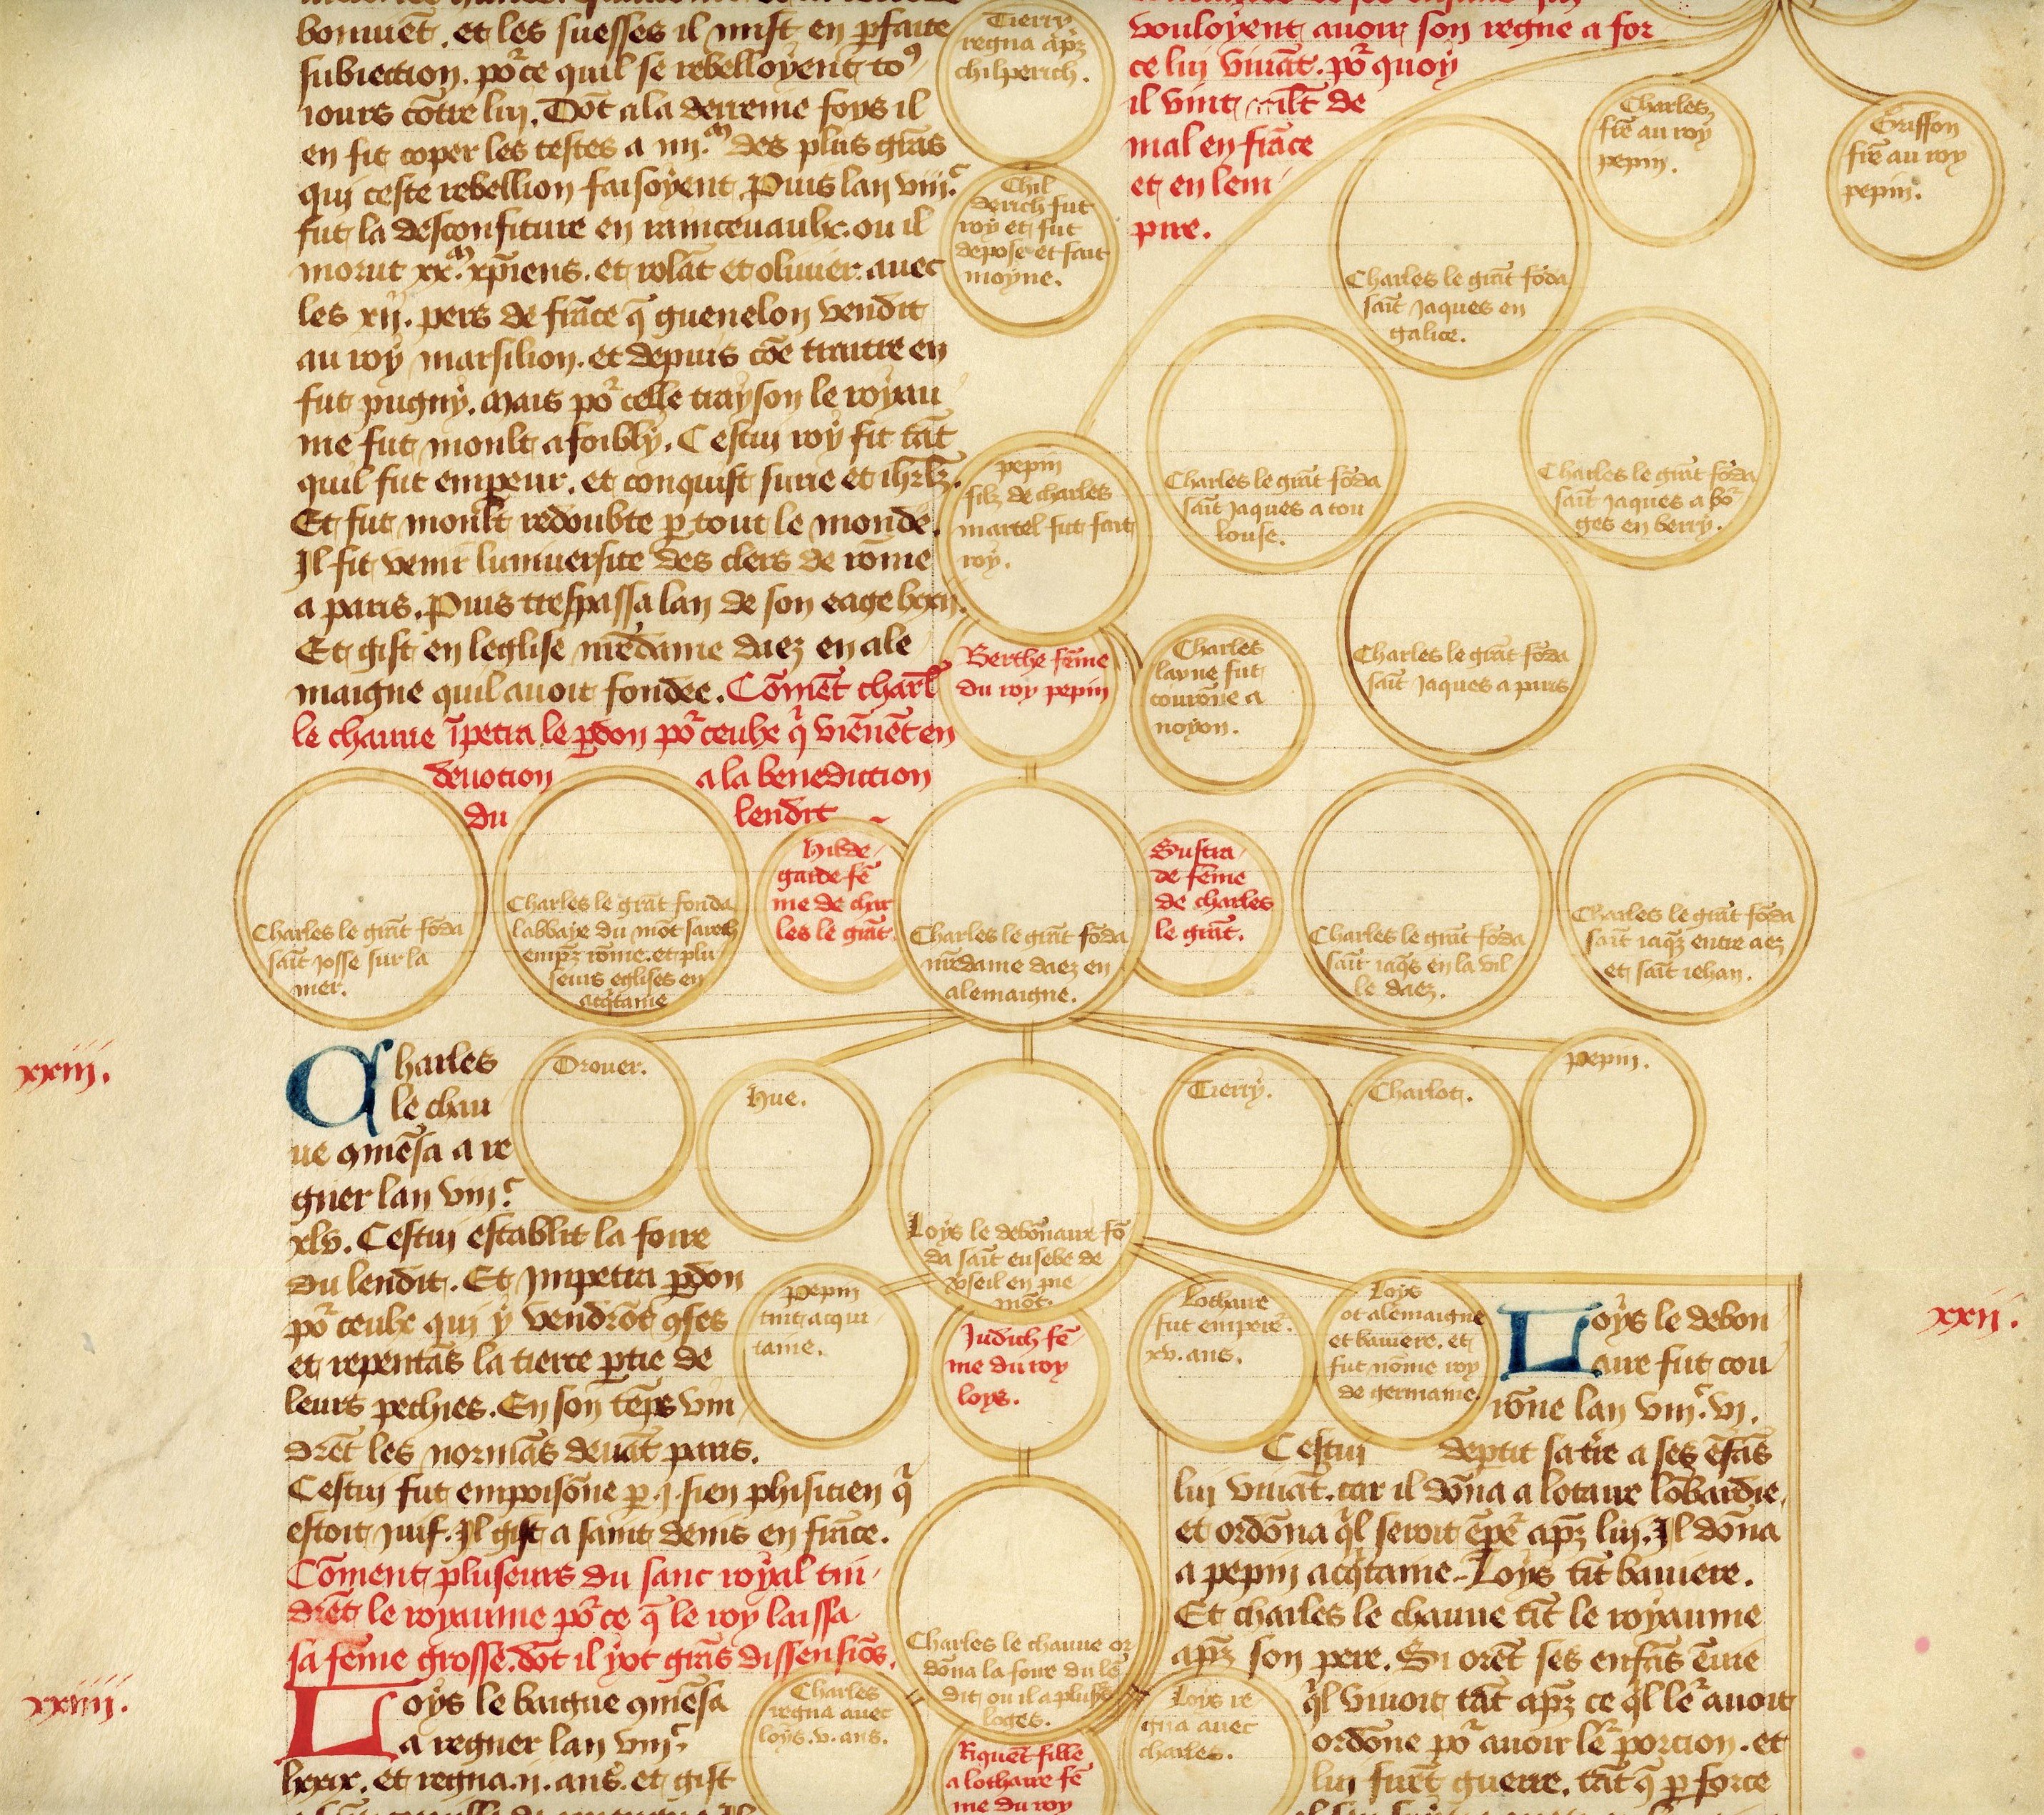 bonnēt. et les suesses il mist en ꝑfaite
subiection. poᷣ ce quil se rebelloyent toꝰ
iours cōtre lui. Dōt a la derreine foys il
en fit coper les testes a iiii.ᵐ des plus grās
qui ceste rebellion faisoyent. Puis lan viii.ᶜ
fut la desconfiture en raincevaulx. ou il
morut xx.ᵐ xp̄iens. et rolāt et oliuier. auec
les xii. pers de frāce q̄ guenelon vendit
au roy marsilion. et depuis cōe traitre en
fut pugny. Mais poᷣ celle trayson le royau
me fut moult afoibly. Cestui roy fit tāt
quil fut empeur. et conquist surie et ihrlz̄.
Et fut moult redoubte ꝑ tout le monde.
Il fit venir luniuersite des clers de rōme
a paris. Puis trespassa lan de son eage lxxii.
Et gist en leglise nr̄edame daez en ale
maigne quil auoit fondee. Cōmēt charl̄
le chauue īpetra le ꝑdon poᷣ ceulx q̄ viēnēt en
deuotion a la benediction
du lendit
Tierry
regna ap̄z
chilperich.
Chil
derich fut
roy et fut
depose et fait
moyne.
vouloyent auoir son regne a for
ce lui viuāt. poᷣ quoy
il vint mlt de
mal en frāce
et en lem
pire.
Charles
fre au roy
pepin.
Griffon
fre au roy
pepin.
Charles le grāt fōda
saīt Jaques en
galice.
Charles le grāt fōda
saīt Jaques a tou
louse.
Charles le grāt fōda
saīt Jaques a boᷣ
ges en berry.
pepin
filz de charles
martel fut fait
roy.
Charles le grāt fōda
saīt Jaques a paris
Berthe fēme
du roy pepin
Charles
layne fut
courōne a
noyon.
Charles le grāt fōda
saīt Josse sur la
mer.
Charles le grāt fonda
labbaye du mōt sarch
emp̄z rōme. et plu
seurs eglises en
acq̄taine
Hilde
garde fē
me de char
les le grāt.
Charles le grāt fōda
nr̄edame daez en
alemaigne.
Gustra
de fēme
de charles
le grāt.
Charles le grāt fōda
saīt iaq̄s en la vil
le daez.
Charles le grāt fōda
saīt iaq̄z entre aez
et saīt iehan.
xxiii.
Charles
le chau
ue ꝯmēsa a re
gner lan viii.ᶜ
xlv. Cestui establit la foire
du lendit. Et Jmpetra ꝑdon
poᷣ ceulx qui y vendrōt ꝯfes
et repentās la tierce ꝑtie de
leurs pechies. En son tēps vin
drēt les normās deuāt paris.
Cestui fut empoisōne ꝑ .i. sien phisitien q̄
estoit iuif. Il gist a saint denis en frāce.
Cōment pluseurs du sanc royal tin
drēt le royaume poᷣ ce q̄ le roy laissa
sa fēme grosse. dōt il yot grās dissensiōs.
xxiiii.
Loys le baigue ꝯmēsa
a regner lan viii.ᶜ
lxxix. et regna .ii. ans. et gist
Drouer.
Hue.
Loys le debōnaire fō
da saīt eusebe de
v̄seil en pie
mōt.
Tierry.
Charlot.
pepin.
Pepin
tint acqui
taine.
Judich fē
me du roy
loys.
Lothaire
fut empeᷣe.
xv. ans.
Loys
ot alemaigne
et bauiere. et
fut nōme roy
de germanie.
xxii.
Loys le debon
aire fut cou
rōne lan viii.ᶜ vi.
Cestui deptit sa tr̄e a ses ēfās
lui viuāt. car il dōna a lotaire lōbardie.
et ordōna q̄l seroit ēpeᷣ ap̄z lui. Il dōna
a pepin acq̄taine. Loys tīt bauiere.
Et charles le chauue tīt le royaume
ap̄z son pere. Si orēt ses enfās ēuie
q̄l viuoit tāt ap̄z ce q̄l leᷣ auoit
ordōne poᷣ auoir leᷣ porcion. et
lui firēt guerre. tāt q̄ ꝑ force
Charles le chauue or
dōna la foire du lē
dit. ou il a plusᷣs
loges.
Charles
regna auec
loys. v. ans.
Riquēt fille
a lothaire fē
me du roy
Loys re
gna auec
charles.